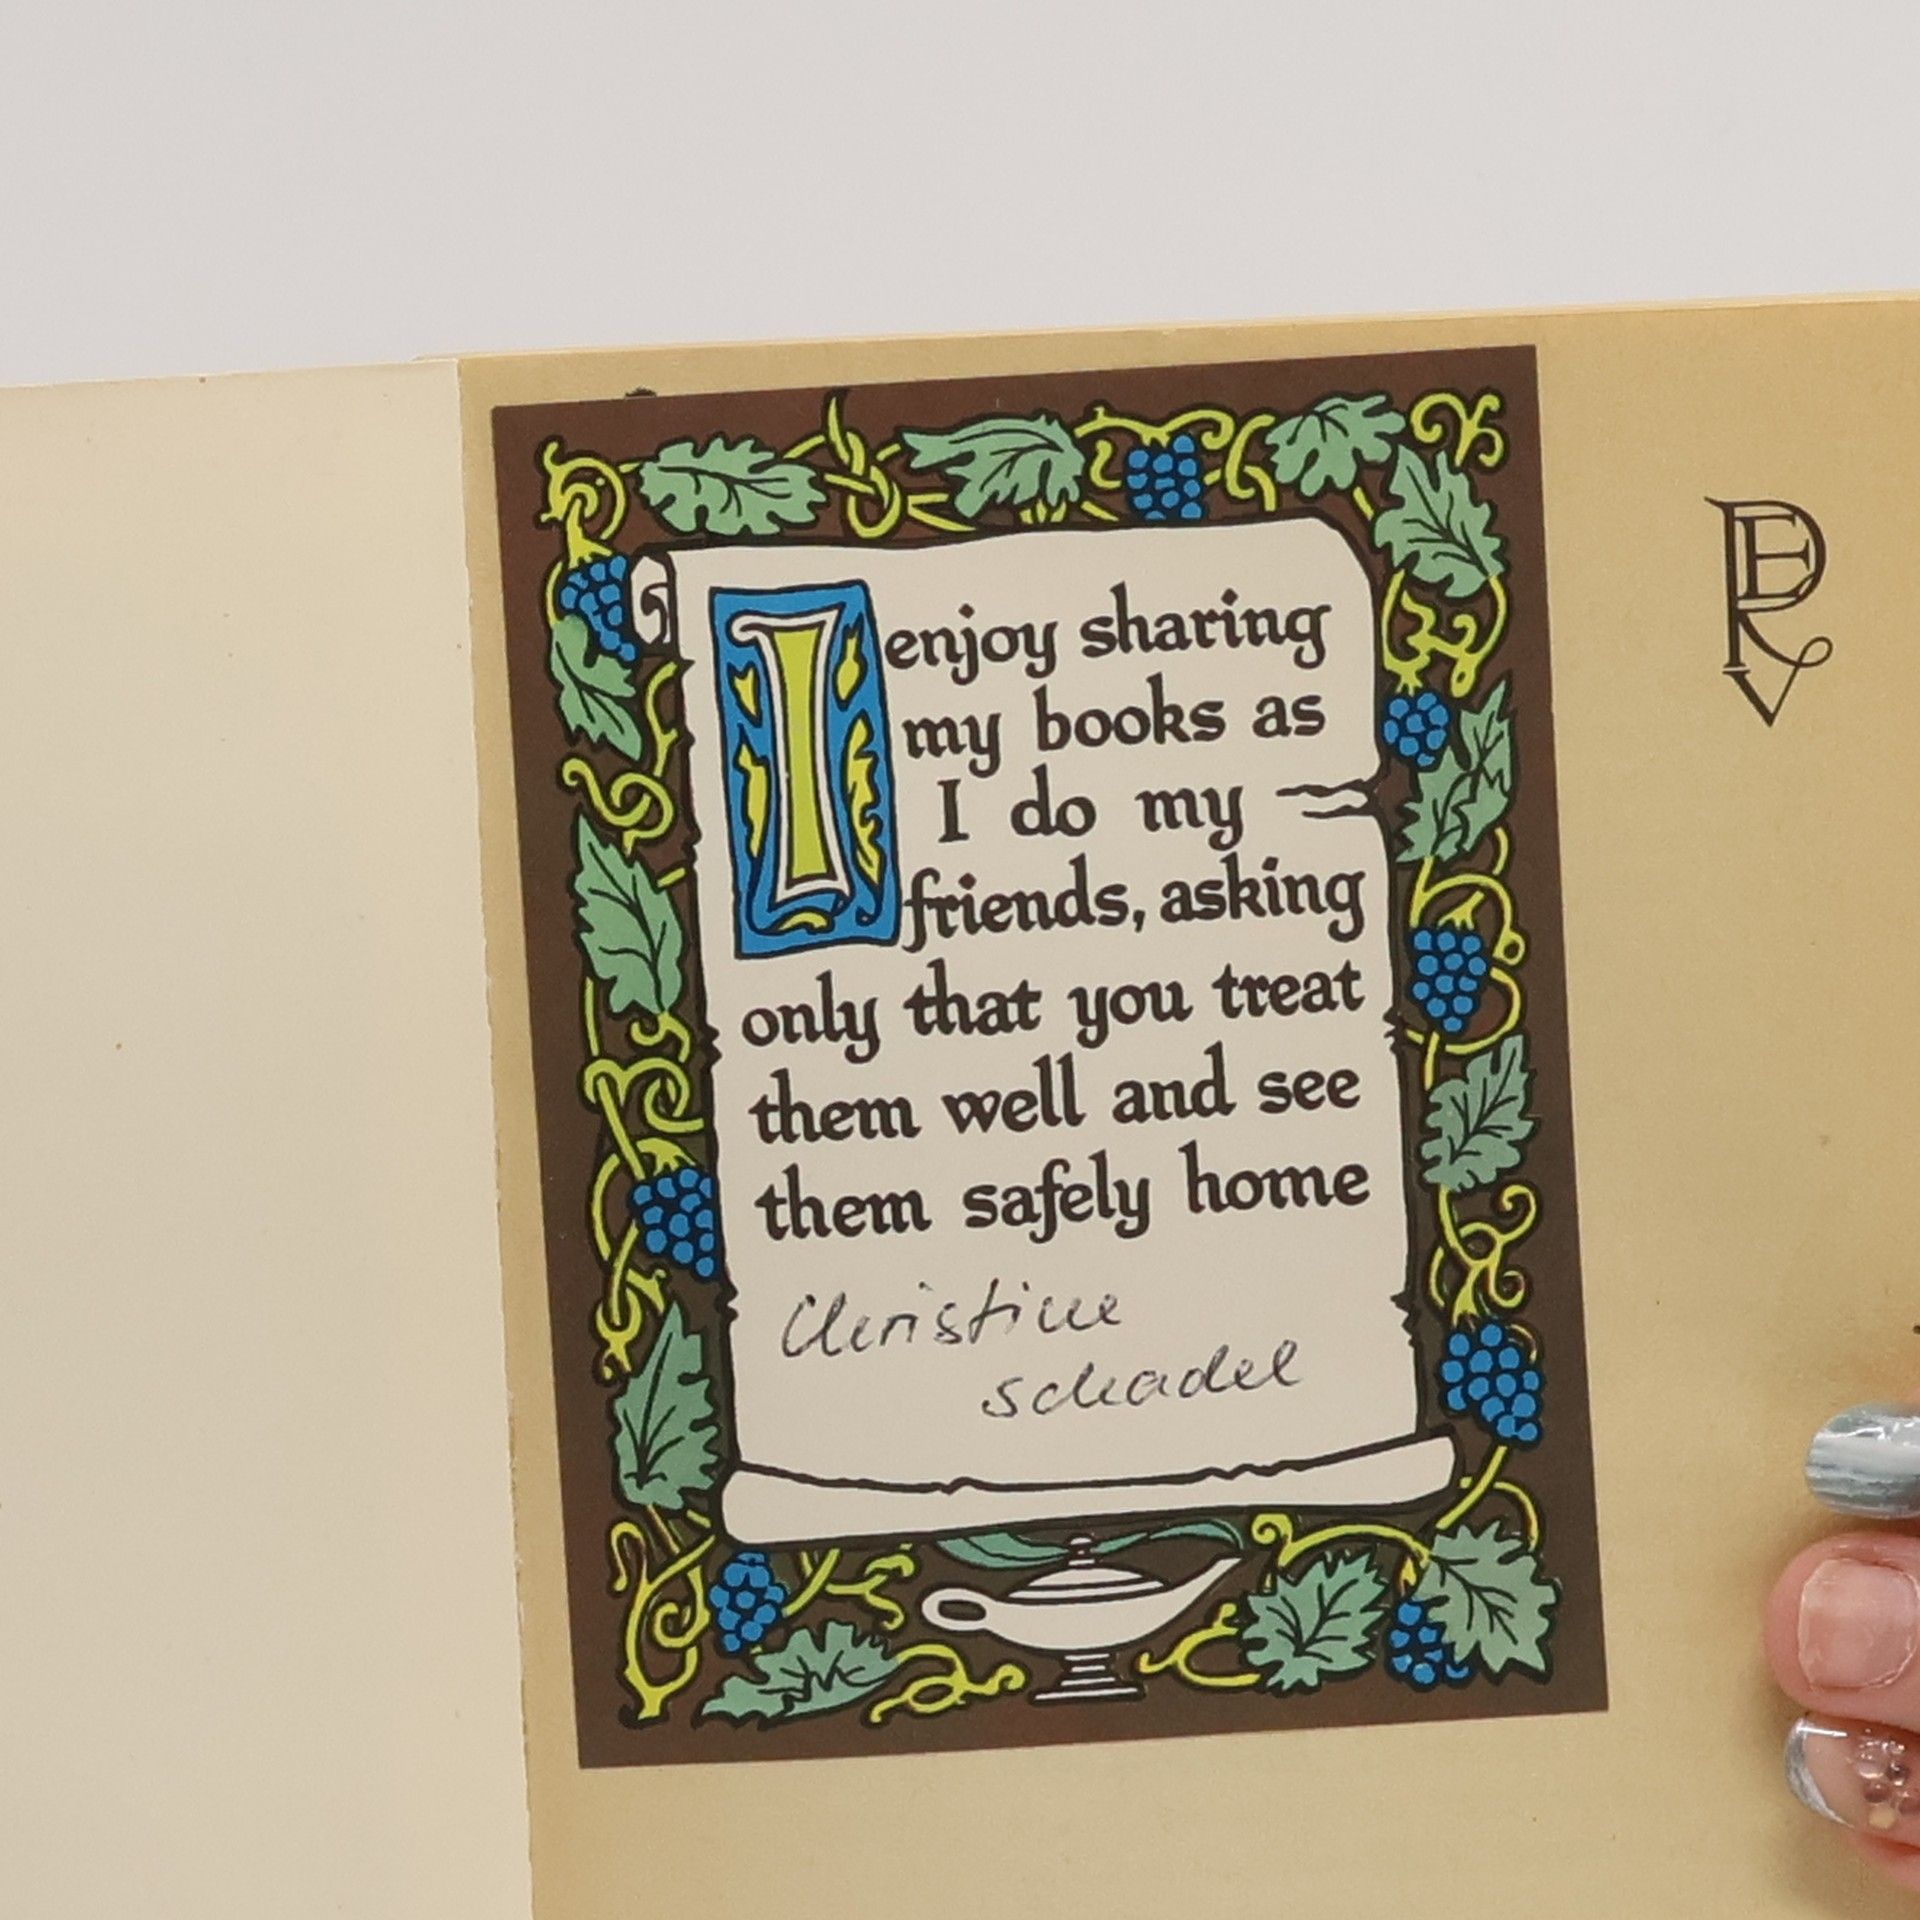 I enjoy sharing
my books as
I do my
friends, asking
only that you treat
them well and see
them safely home
Christine
schadel